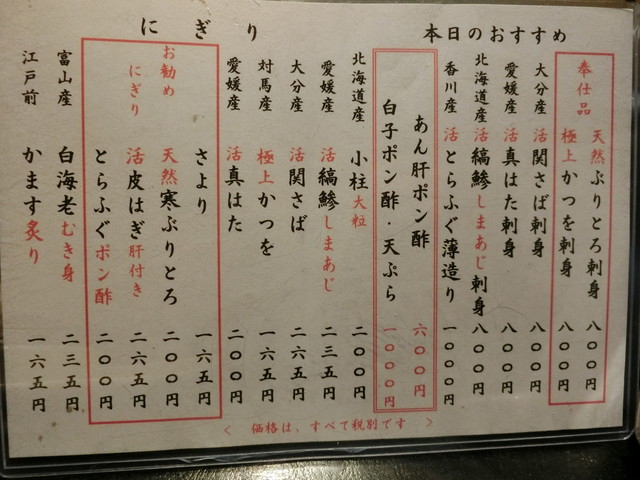 本日のおすすめ
奉仕品
天然ぶりとろ刺身 八〇〇円
極上かつを刺身 八〇〇円
大分産 活関さば刺身 八〇〇円
愛媛産 活真はた刺身 八〇〇円
北海道産 活縞鯵しまあじ刺身 八〇〇円
香川産 活とらふぐ薄造り 一〇〇〇円
あん肝ポン酢 六〇〇円
白子ポン酢・天ぷら 一〇〇〇円
にぎり
北海道産 小柱大粒 二〇〇円
愛媛産 活縞鯵しまあじ 二三五円
大分産 活関さば 二六五円
対馬産 極上かつを 一六五円
愛媛産 活真はた 二〇〇円
さより 一六五円
お勧めにぎり
天然寒ぶりとろ 二〇〇円
活皮はぎ肝付き 二六五円
とらふぐポン酢 二〇〇円
富山産 白海老むき身 二三五円
江戸前 かます炙り 一六五円
＜ 価格は、すべて税別です ＞